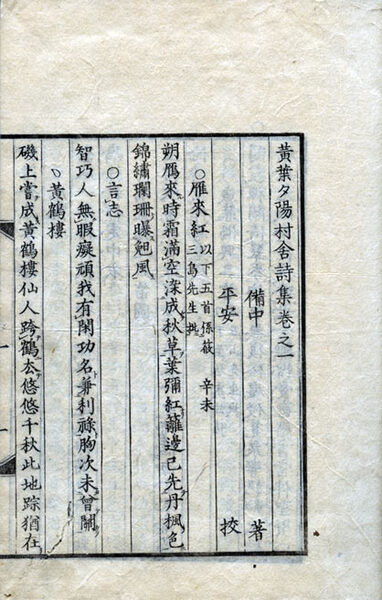 黃葉夕陽村舍詩集卷之一
備中 著
平安 挍
○雁來紅 以下五首係筱三島先生撰 辛未
朔鴈來時霜滿空染成秋草葉彌紅籬邊已先丹楓色
錦繡斕珊曝風
○言志
智巧人無暇癡頑我有閑功名兼利祿胸次未曾關
﹅黃鶴樓
磯上嘗成黃鶴樓仙人跨鶴厺悠悠千秋此地踪猶在